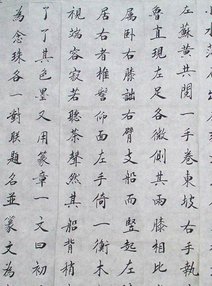 左蘇黃共閱一手卷東坡右手執
魯直現左足各微側其兩膝相比
属卧右膝詘右臂支船而竪起左
居右者椎髻仰面左手倚一衡木
視端容寂若聽茶聲然其船背稍
了了其色墨又用篆章一文曰初
為念珠各一對聯題名並篆文為